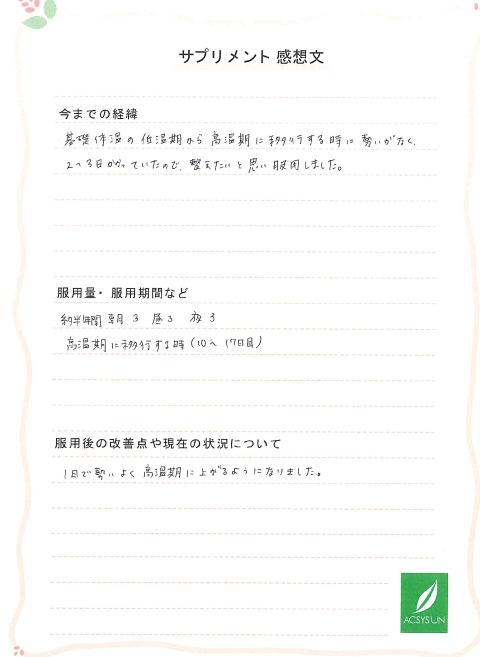 サプリメント 感想文
今までの経緯
基礎体温の低温期から高温期に移行する時に勢いがなく、
2〜3日かかっていたので、整えたいと思い服用しました。
服用量・服用期間など
約半年間 朝3 昼3 夜3
高温期に移行する時(10〜17日目)
服用後の改善点や現在の状況について
1日で勢いよく高温期に上がるようになりました。
ACSYSUN